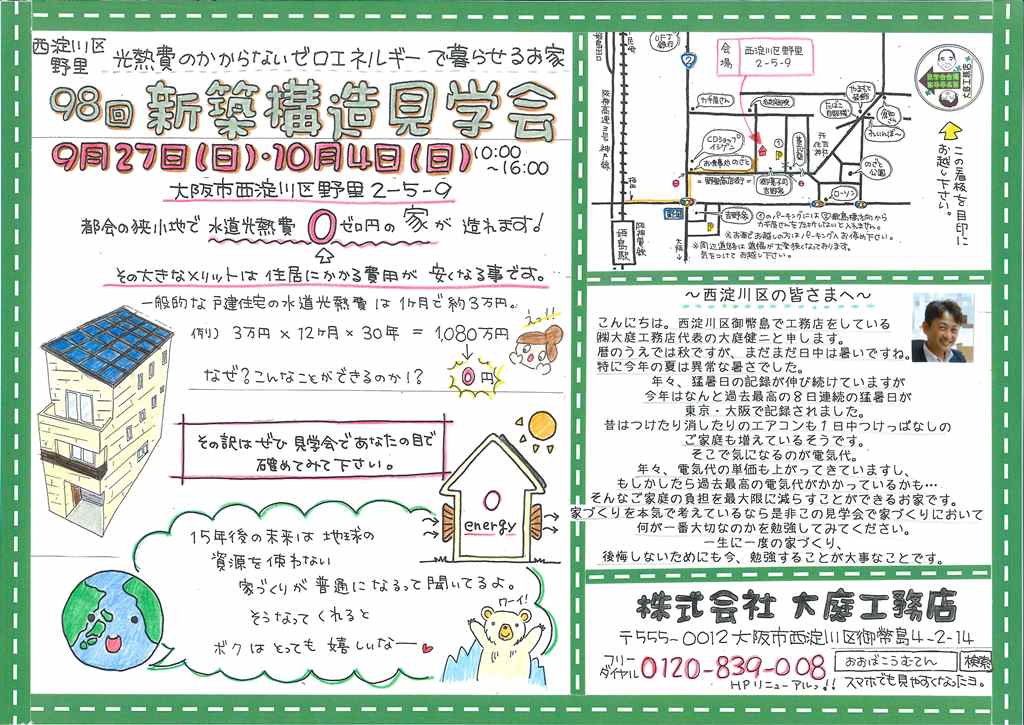 西淀川区
野里
光熱費のかからないゼロエネルギーで暮らせるお家
98回 新築構造見学会
9月27日(日)・10月4日(日)
10:00
~16:00
大阪市西淀川区野里2-5-9
都会の狭小地で 水道光熱費 0ゼロ円の 家が 造れます!
その大きなメリットは 住居にかかる費用が 安くなる事です。
一般的な戸建住宅の水道光熱費は1ヶ月で約3万円。
例) 3万円 × 12ヶ月 × 30年 = 1,080万円
なぜ?こんなことができるのか!?
0円
その訳はぜひ 見学会であなたの目で
確めてみて下さい。
0
energy
15年後の未来は 地球の
資源を使わない
家づくりが 普通になるって聞いてるよ。
そうなってくれると
ボクは とっても 嬉しいなー
ワーイ!
会場
西淀川区野里
2-5-9
2
カギ屋さん
CDショップ
イシゲニ
お食事処のざと
たばこ
自販機
のざと
公園
ローソン
吉野家
姫島駅
阪神電鉄
大阪
この看板を目印に
お越し下さい。
大庭工務店
※お車でお越しの方はパーキングへお停め下さい。
※周辺道路は道幅が大変狭くなっております。
気をつけてお越し下さい。
~西淀川区の皆さまへ~
こんにちは。西淀川区御幣島で工務店をしている
㈱大庭工務店代表の大庭健二と申します。
暦のうえでは秋ですが、まだまだ日中は暑いですね。
特に今年の夏は異常な暑さでした。
年々、猛暑日の記録が伸び続けていますが
今年はなんと過去最高の8日連続の猛暑日が
東京・大阪で記録されました。
昔はつけたり消したりのエアコンも1日中つけっぱなしの
ご家庭も増えているそうです。
そこで気になるのが電気代。
年々、電気代の単価も上がってきていますし、
もしかしたら過去最高の電気代がかかっているかも…
そんなご家庭の負担を最大限に減らすことができるお家です。
家づくりを本気で考えているなら是非この見学会で家づくりにおいて
何が一番大切なのかを勉強してみてください。
一生に一度の家づくり、
後悔しないためにも今、勉強することが大事なことです。
株式会社 大庭工務店
〒555-0012 大阪市西淀川区御幣島4-2-14
フリー
ダイヤル 0120-839-008
おおばこうむてん 検索
HPリニューアルっ!! スマホでも見やすくなったヨ。